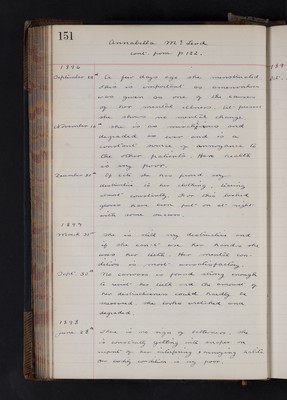 151
Annabella McLeod
cont. from p 122.
1896
September 28th A few days ago she menstruated
This is important as amenorrhoea
was given as one of the causes
of her mental illness. At present
she shows no mental change.
November 10th She is as mischievous and
degraded as ever and is a
constant source of annoyance to
the other patients. Her health
is very poor.
December 30th Of late she has proved very
destructive to her clothing, tearing
almost constantly. For this locked
gloves have been put on at night
with some success.
1897
March 30th She is still very destructive and
if she can't use her hands she
uses her teeth. Her mental con-
dition is most unsatisfactory.
Sept. 30th No canvas is found strong enough
to resist her teeth and the amount of
her destructiveness could hardly be
measured. She looks wretched and
degraded.
1898
June 28th There is no sign of betterment. She
is constantly getting into scrapes on
account of her interfering & annoying habits
Her bodily condition is very poor.